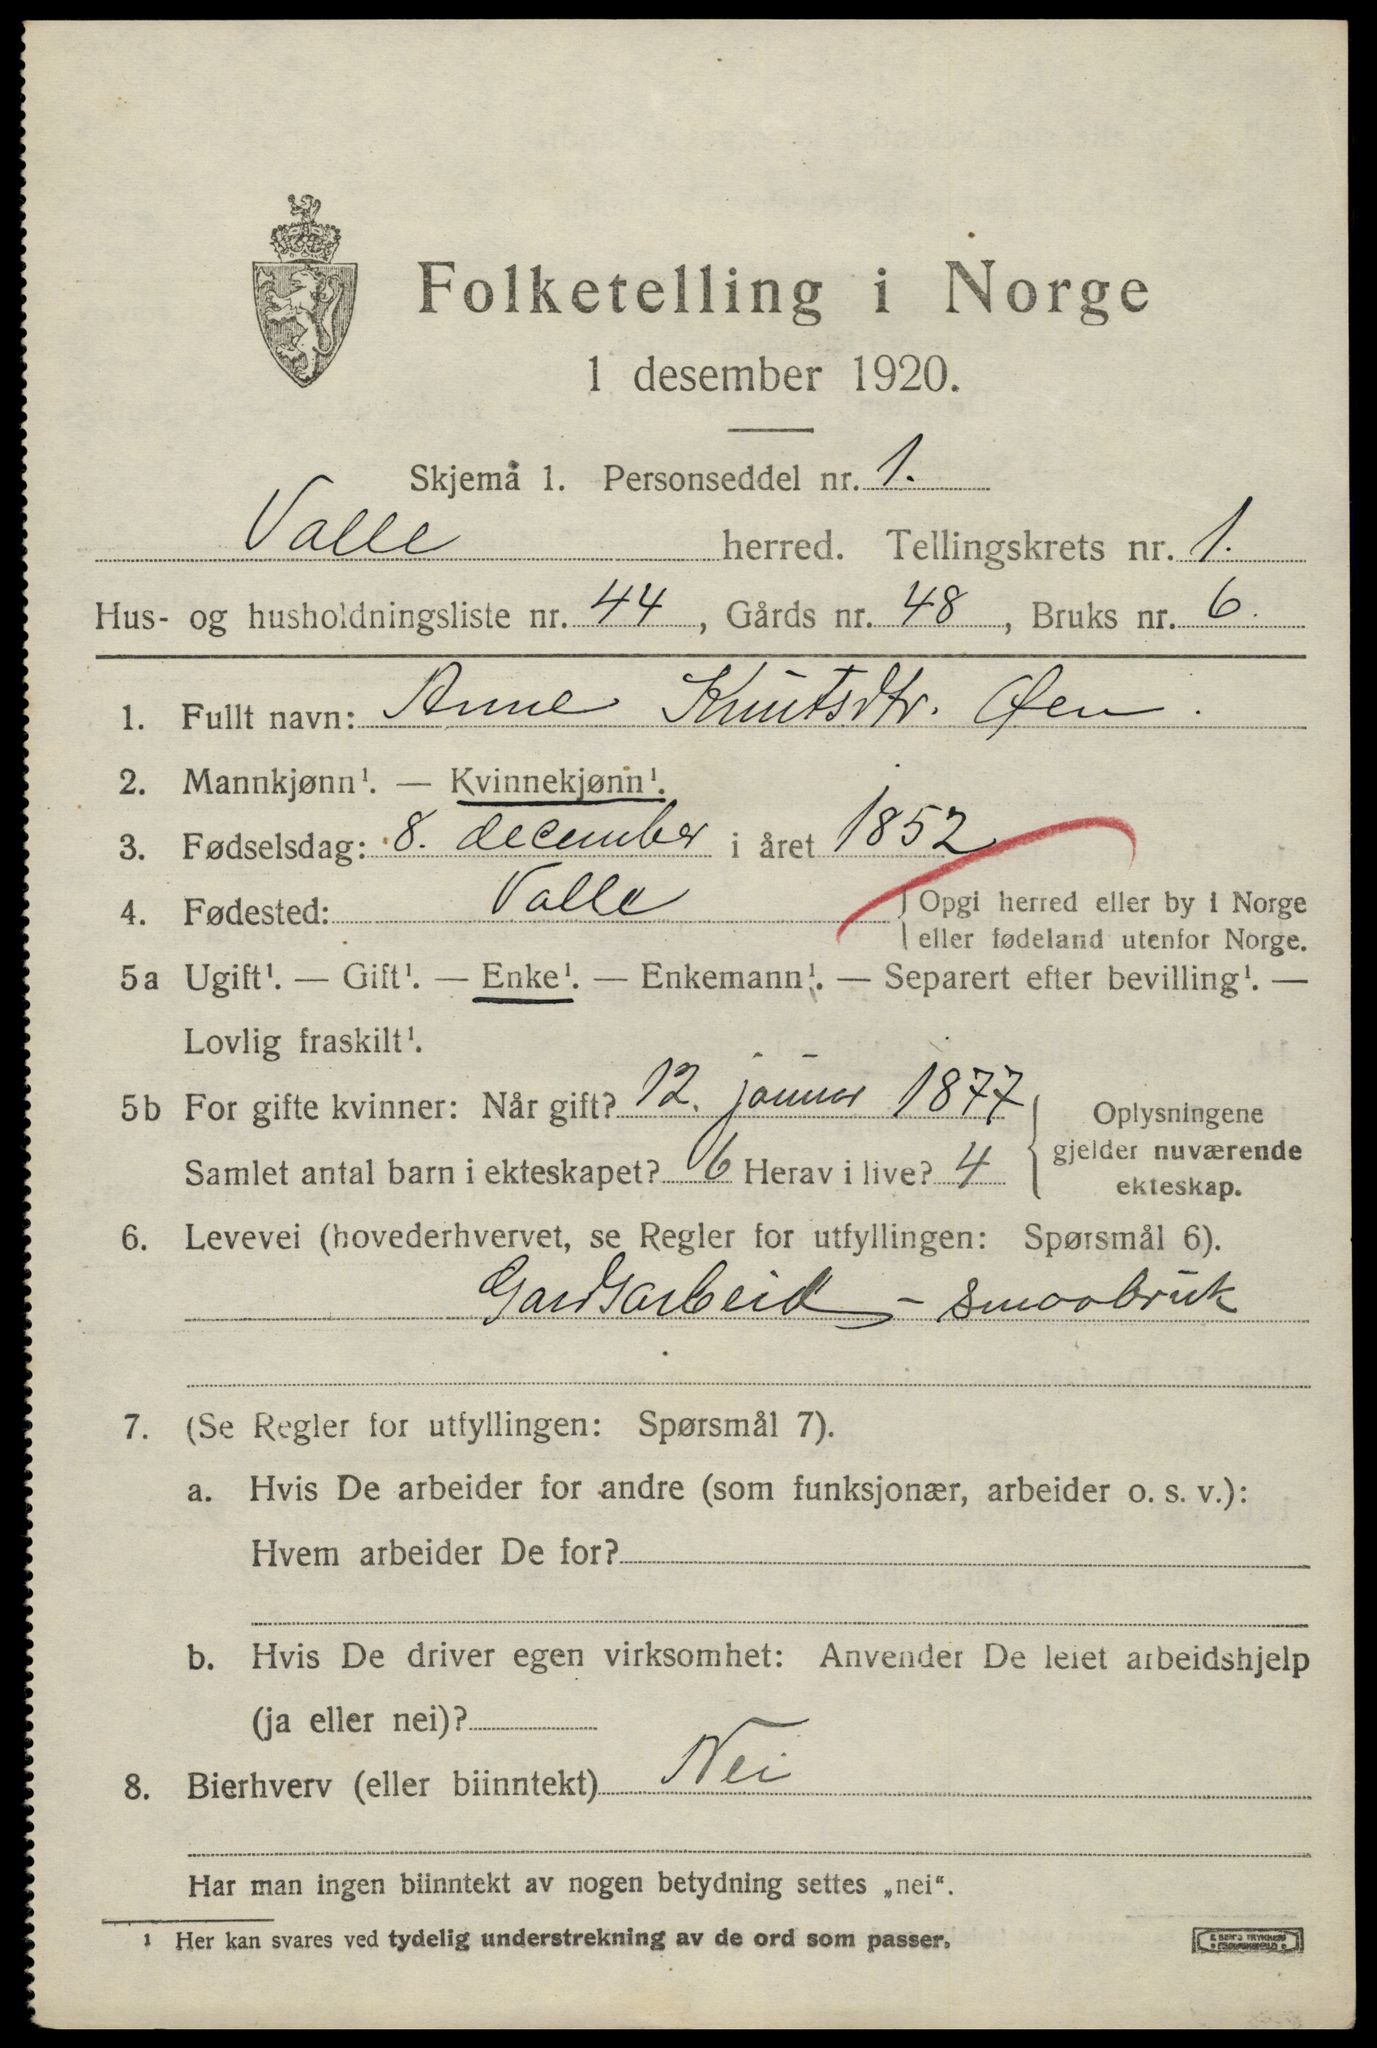 Folketelling i Norge
1 desember 1920.
Skjema 1. Personseddel nr. 1.
Valle herred. Tellingskrets nr. 1.
Hus- og husholdningsliste nr. 44, Gårds nr. 48, Bruks nr. 6.
1. Fullt navn: Anne Knutsdtr. Øen.
2. Mannkjønn¹. — Kvinnekjønn¹.
3. Fødselsdag: 8. december i året 1852
4. Fødested: Valle Opgi herred eller by i Norge
eller fødeland utenfor Norge.
5a Ugift¹. — Gift¹. — Enke¹. — Enkemann¹. — Separert efter bevilling¹. —
Lovlig fraskilt¹.
5b For gifte kvinner: Når gift? 12. januar 1877
Samlet antal barn i ekteskapet? 6 Herav i live? 4
Oplysningene
gjelder nuværende
ekteskap.
6. Levevei (hovederhvervet, se Regler for utfyllingen: Spørsmål 6).
Gardsarbeid – smaabruk
7. (Se Regler for utfyllingen: Spørsmål 7).
a. Hvis De arbeider for andre (som funksjonær, arbeider o. s. v.):
Hvem arbeider De for?
b. Hvis De driver egen virksomhet: Anvender De leiet arbeidshjelp
(ja eller nei)?
8. Bierhverv (eller biinntekt) Nei
Har man ingen biinntekt av nogen betydning settes „nei“.
¹ Her kan svares ved tydelig understrekning av de ord som passer.